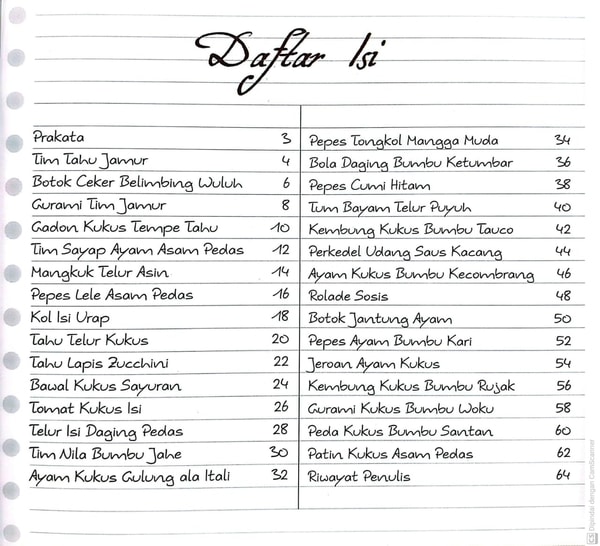 Daftar Isi
Prakata 3
Tim Tahu Jamur 4
Botok Ceker Belimbing Wuluh 6
Gurami Tim Jamur 8
Gadon Kukus Tempe Tahu 10
Tim Sayap Ayam Asam Pedas 12
Mangkuk Telur Asin 14
Pepes Lele Asam Pedas 16
Kol Isi Urap 18
Tahu Telur Kukus 20
Tahu Lapis Zucchini 22
Bawal Kukus Sayuran 24
Tomat Kukus Isi 26
Telur Isi Daging Pedas 28
Tim Nila Bumbu Jahe 30
Ayam Kukus Gulung ala Itali 32
Pepes Tongkol Mangga Muda 34
Bola Daging Bumbu Ketumbar 36
Pepes Cumi Hitam 38
Tum Bayam Telur Puyuh 40
Kembung Kukus Bumbu Tauco 42
Perkedel Udang Saus Kacang 44
Ayam Kukus Bumbu Kecombrang 46
Rolade Sosis 48
Botok Jantung Ayam 50
Pepes Ayam Bumbu Kari 52
Jeroan Ayam Kukus 54
Kembung Kukus Bumbu Rujak 56
Gurami Kukus Bumbu Woku 58
Peda Kukus Bumbu Santan 60
Patin Kukus Asam Pedas 62
Riwayat Penulis 64
CS Dipindai dengan CamScanner